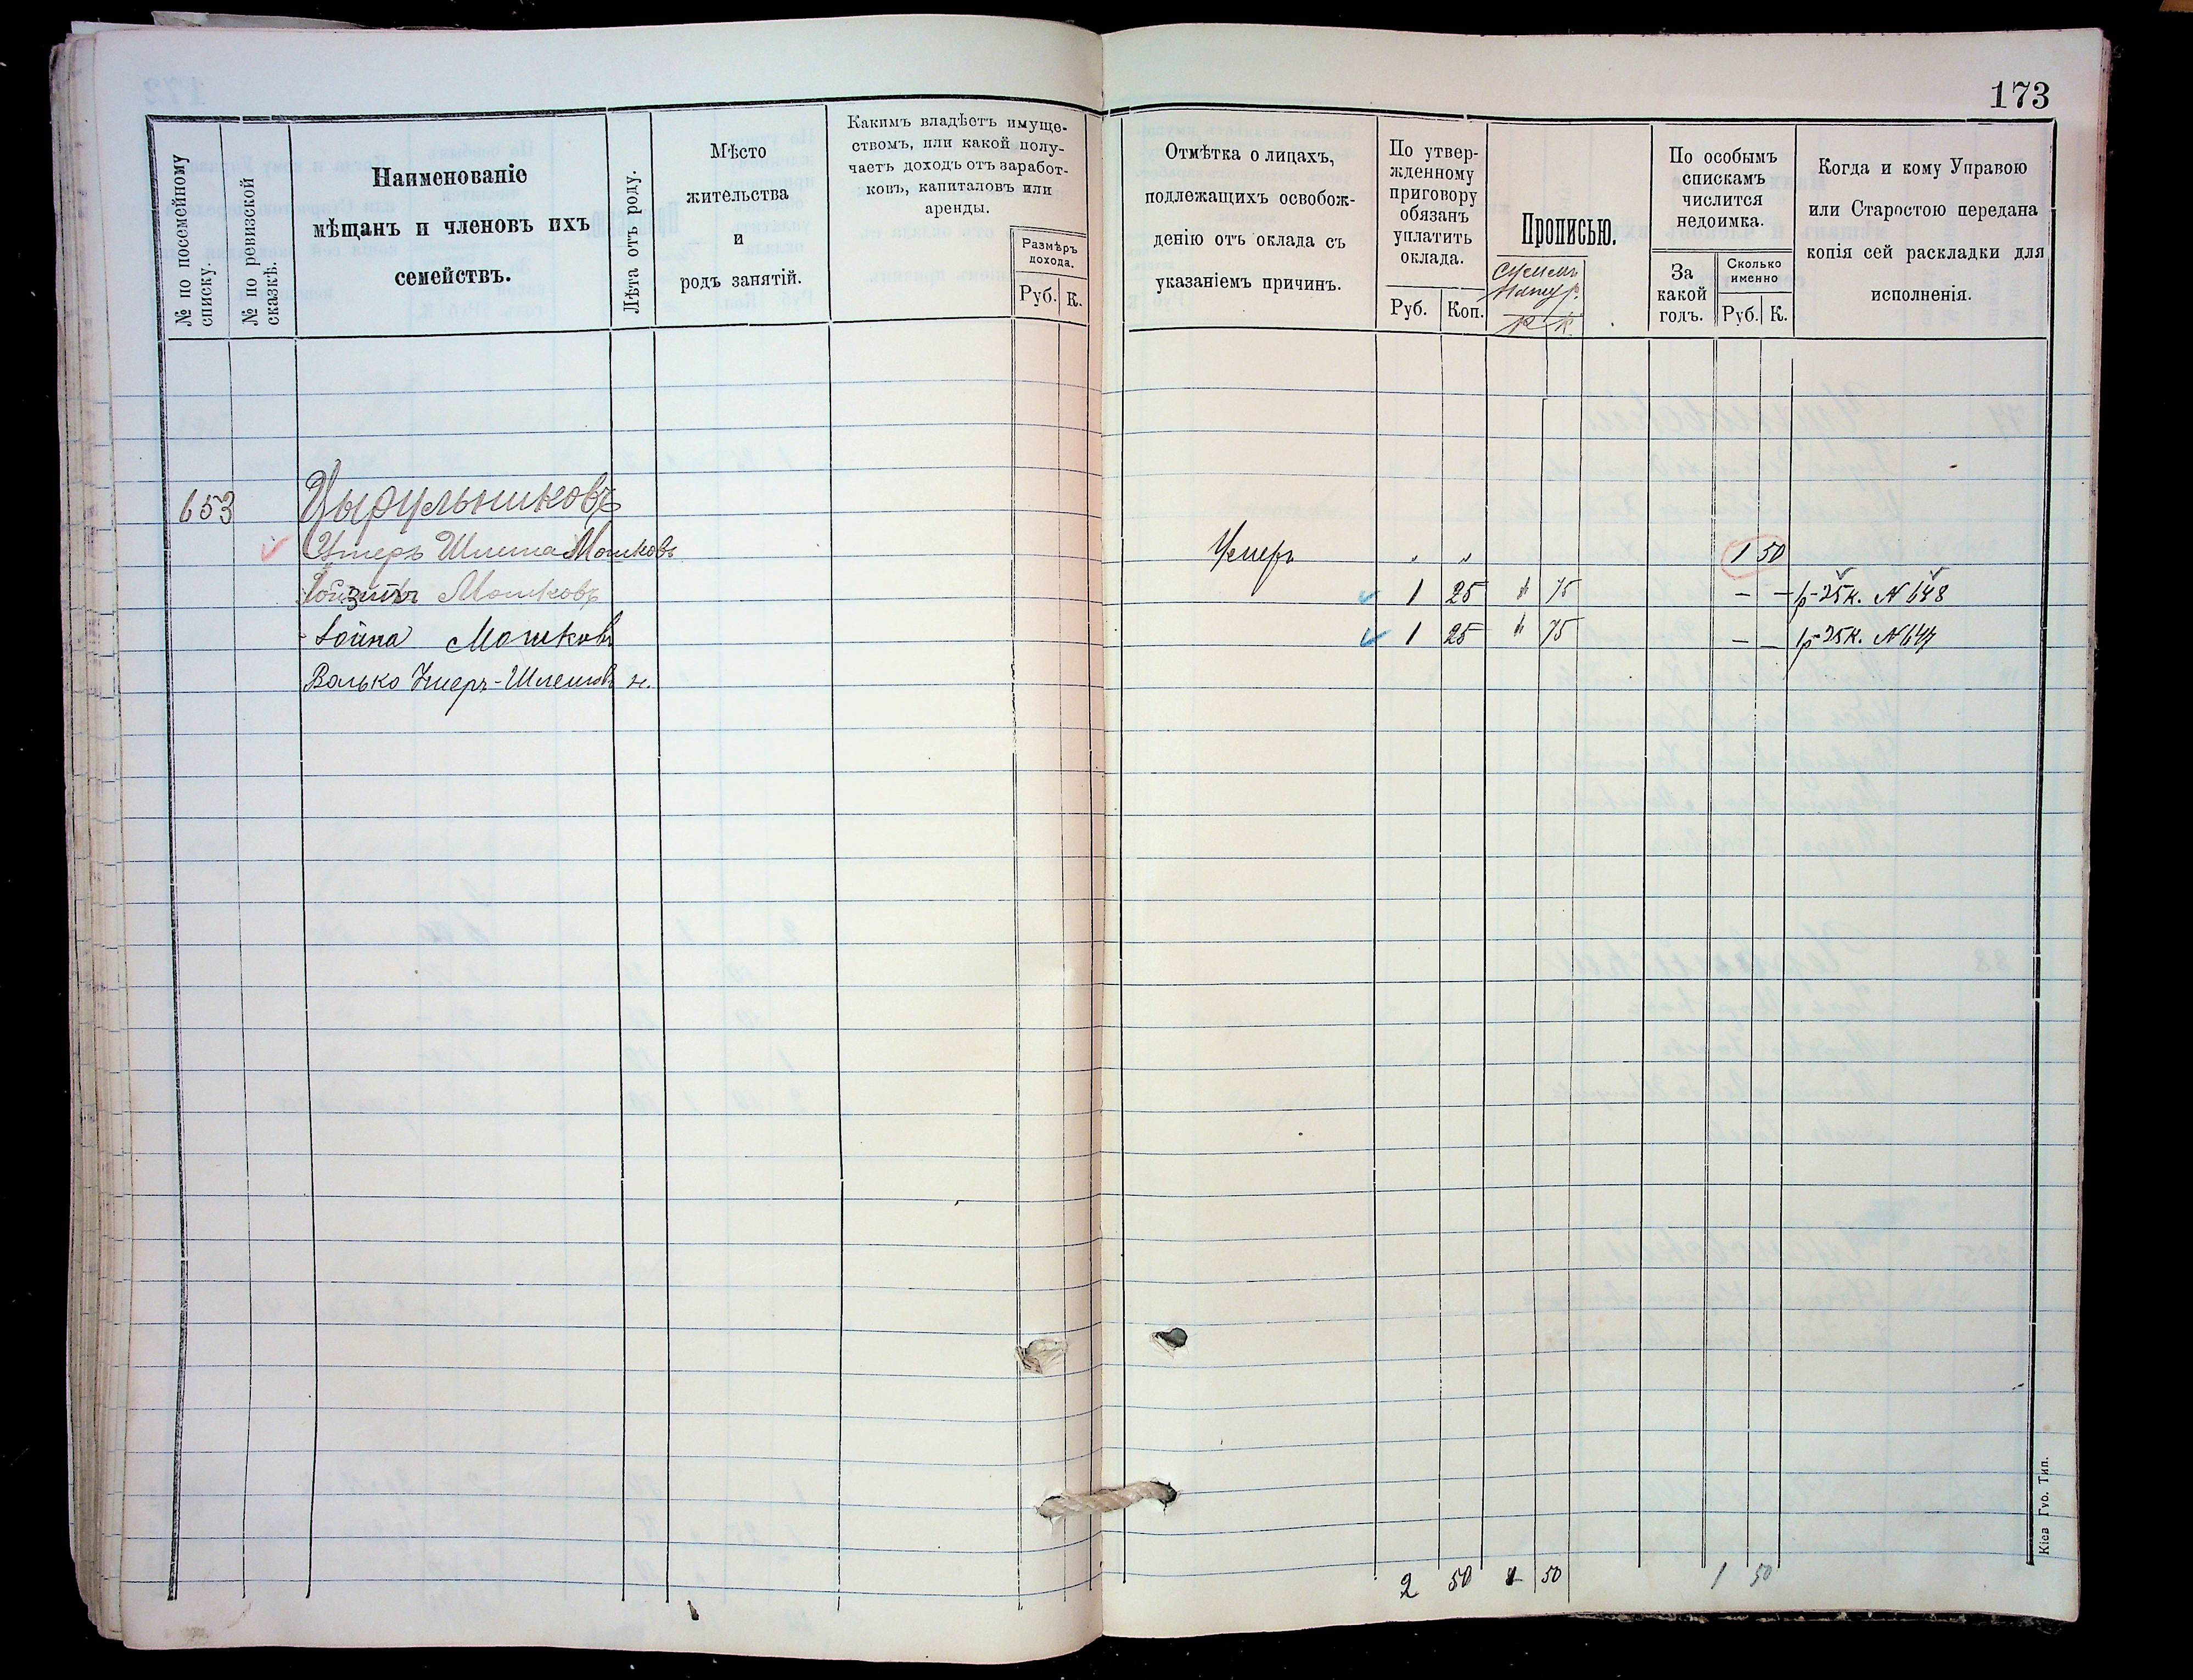 173
№ по посемейному списку.
№ по ревизской сказкѣ.
Наименованіе
мѣщанъ и членовъ ихъ
семействъ.
Лѣта отъ роду.
Мѣсто
жительства
и
родъ занятій.
Какимъ владѣетъ имуще-
ствомъ, или какой полу-
чаетъ доходъ отъ заработ-
ковъ, капиталовъ или
аренды.
Размѣръ
дохода.
Руб. К.
Отмѣтка о лицахъ,
подлежащихъ освобож-
денію отъ оклада съ
указаніемъ причинъ.
По утвер-
жденному
приговору
обязанъ
уплатить
оклада.
Руб. Коп.
Прописью.
По особымъ
спискамъ
числится
недоимка.
За
какой
годъ.
Сколько
именно
Руб. К.
Когда и кому Управою
или Старостою передана
копія сей раскладки для
исполненія.
653 Цырульниковъ
Умеръ Шлема Мошковъ Умеръ " " 1 50
Мошковъ 1 25 " 75 — — 1р 25к. № 648
Хойна Мошковъ 1 25 " 75 — — 1р 25к. № 647
Волько Умеръ-Шлемовъ н.
2 50 1 50 1 50
Кіев. Губ. Тип.